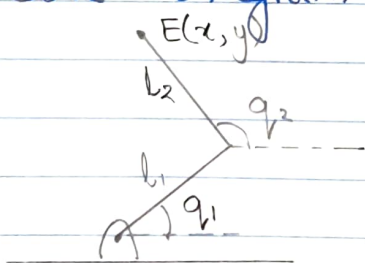 E(x, y)
l₂
q₂
l₁
q₁